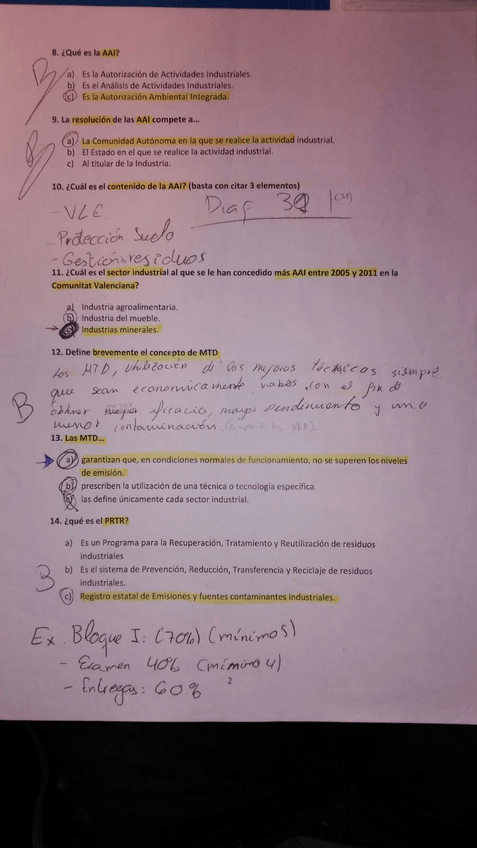 8. ¿Qué es la AAI?
B
a) Es la Autorización de Actividades Industriales.
b) Es el Análisis de Actividades Industriales.
c) Es la Autorización Ambiental Integrada.
9. La resolución de las AAI compete a...
B
a) La Comunidad Autónoma en la que se realice la actividad industrial.
b) El Estado en el que se realice la actividad industrial.
c) Al titular de la Industria.
10. ¿Cuál es el contenido de la AAI? (basta con citar 3 elementos)
- VLE. Diap 39
- Protección Suelo
- Gestión residuos
11. ¿Cuál es el sector industrial al que se le han concedido más AAI entre 2005 y 2011 en la
Comunitat Valenciana?
a) Industria agroalimentaria.
b) Industria del mueble.
Industrias minerales.
12. Define brevemente el concepto de MTD
Las MTD, utilización de las mejores técnicas siempre
que sean economicamente viables con el fin de
B
obtener mayor eficacia, mayor rendimiento y una
menor contaminación.
13. Las MTD...
a) garantizan que, en condiciones normales de funcionamiento, no se superen los niveles
de emisión.
b) prescriben la utilización de una técnica o tecnología específica.
c) las define únicamente cada sector industrial.
14. ¿qué es el PRTR?
a) Es un Programa para la Recuperación, Tratamiento y Reutilización de residuos
industriales
b) Es el sistema de Prevención, Reducción, Transferencia y Reciclaje de residuos
industriales.
B
c) Registro estatal de Emisiones y fuentes contaminantes industriales.
Ex. Bloque I: (70%) (mínimo 5)
- Examen 40% (mínimo 4)
- Entregas: 60%
2